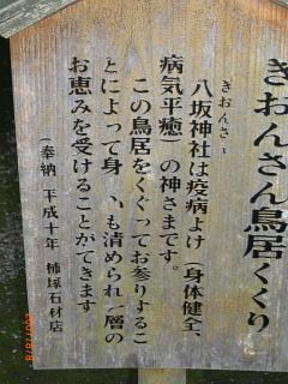 きおんさん鳥居くぐり
きおんさま
八坂神社は疫病よけ（身体健全、
病気平癒）の神さまです。
この鳥居をくぐってお参りするこ
とによって身、心も清められ一層の
お恵みを受けることができます
（奉納 平成十年 柿塚石材店